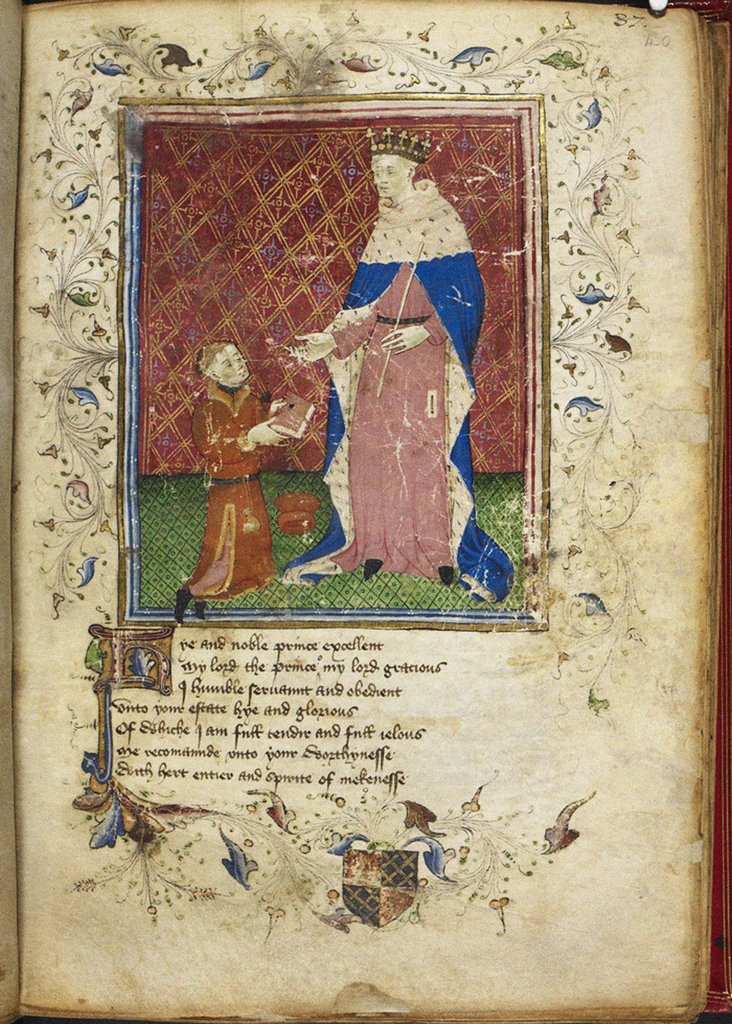 37
40
Hye and noble prince excellent
My lord the prince o my lord gracious
I humble servaunt and obedient
Unto your estate hye and glorious
Of whiche I am full tendir and full ielous
Me recomaunde unto your worthynesse
With hert entier and spirite of mekenesse